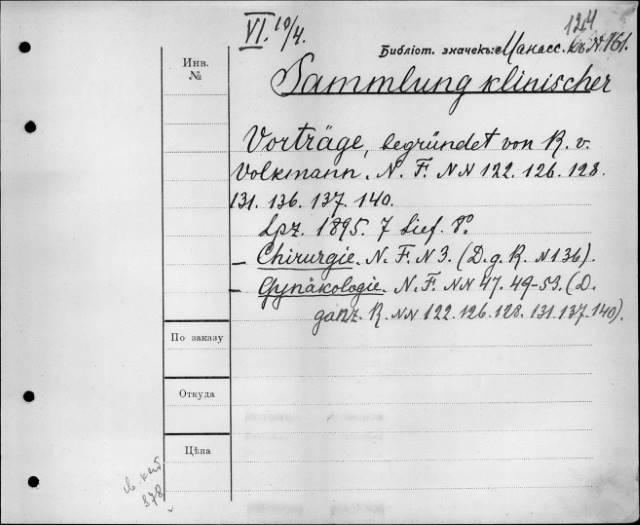 VI. 10/4.
124
Библіот. значекъ: Манасс. къ № 161.
Инв.
№
Sammlung klinischer
Vorträge, begründet von R. v.
Volkmann. N. F. NN 122. 126. 128.
131. 136. 137. 140.
Lpz. 1895. 7 Lief. 8°.
— Chirurgie. N. F. N 3. (D. g. R. N 136).
— Gynäkologie. N. F. NN 47. 49-53. (D.
ganz. R. NN 122. 126. 128. 131. 137. 140).
По заказу
Откуда
Цѣна
378